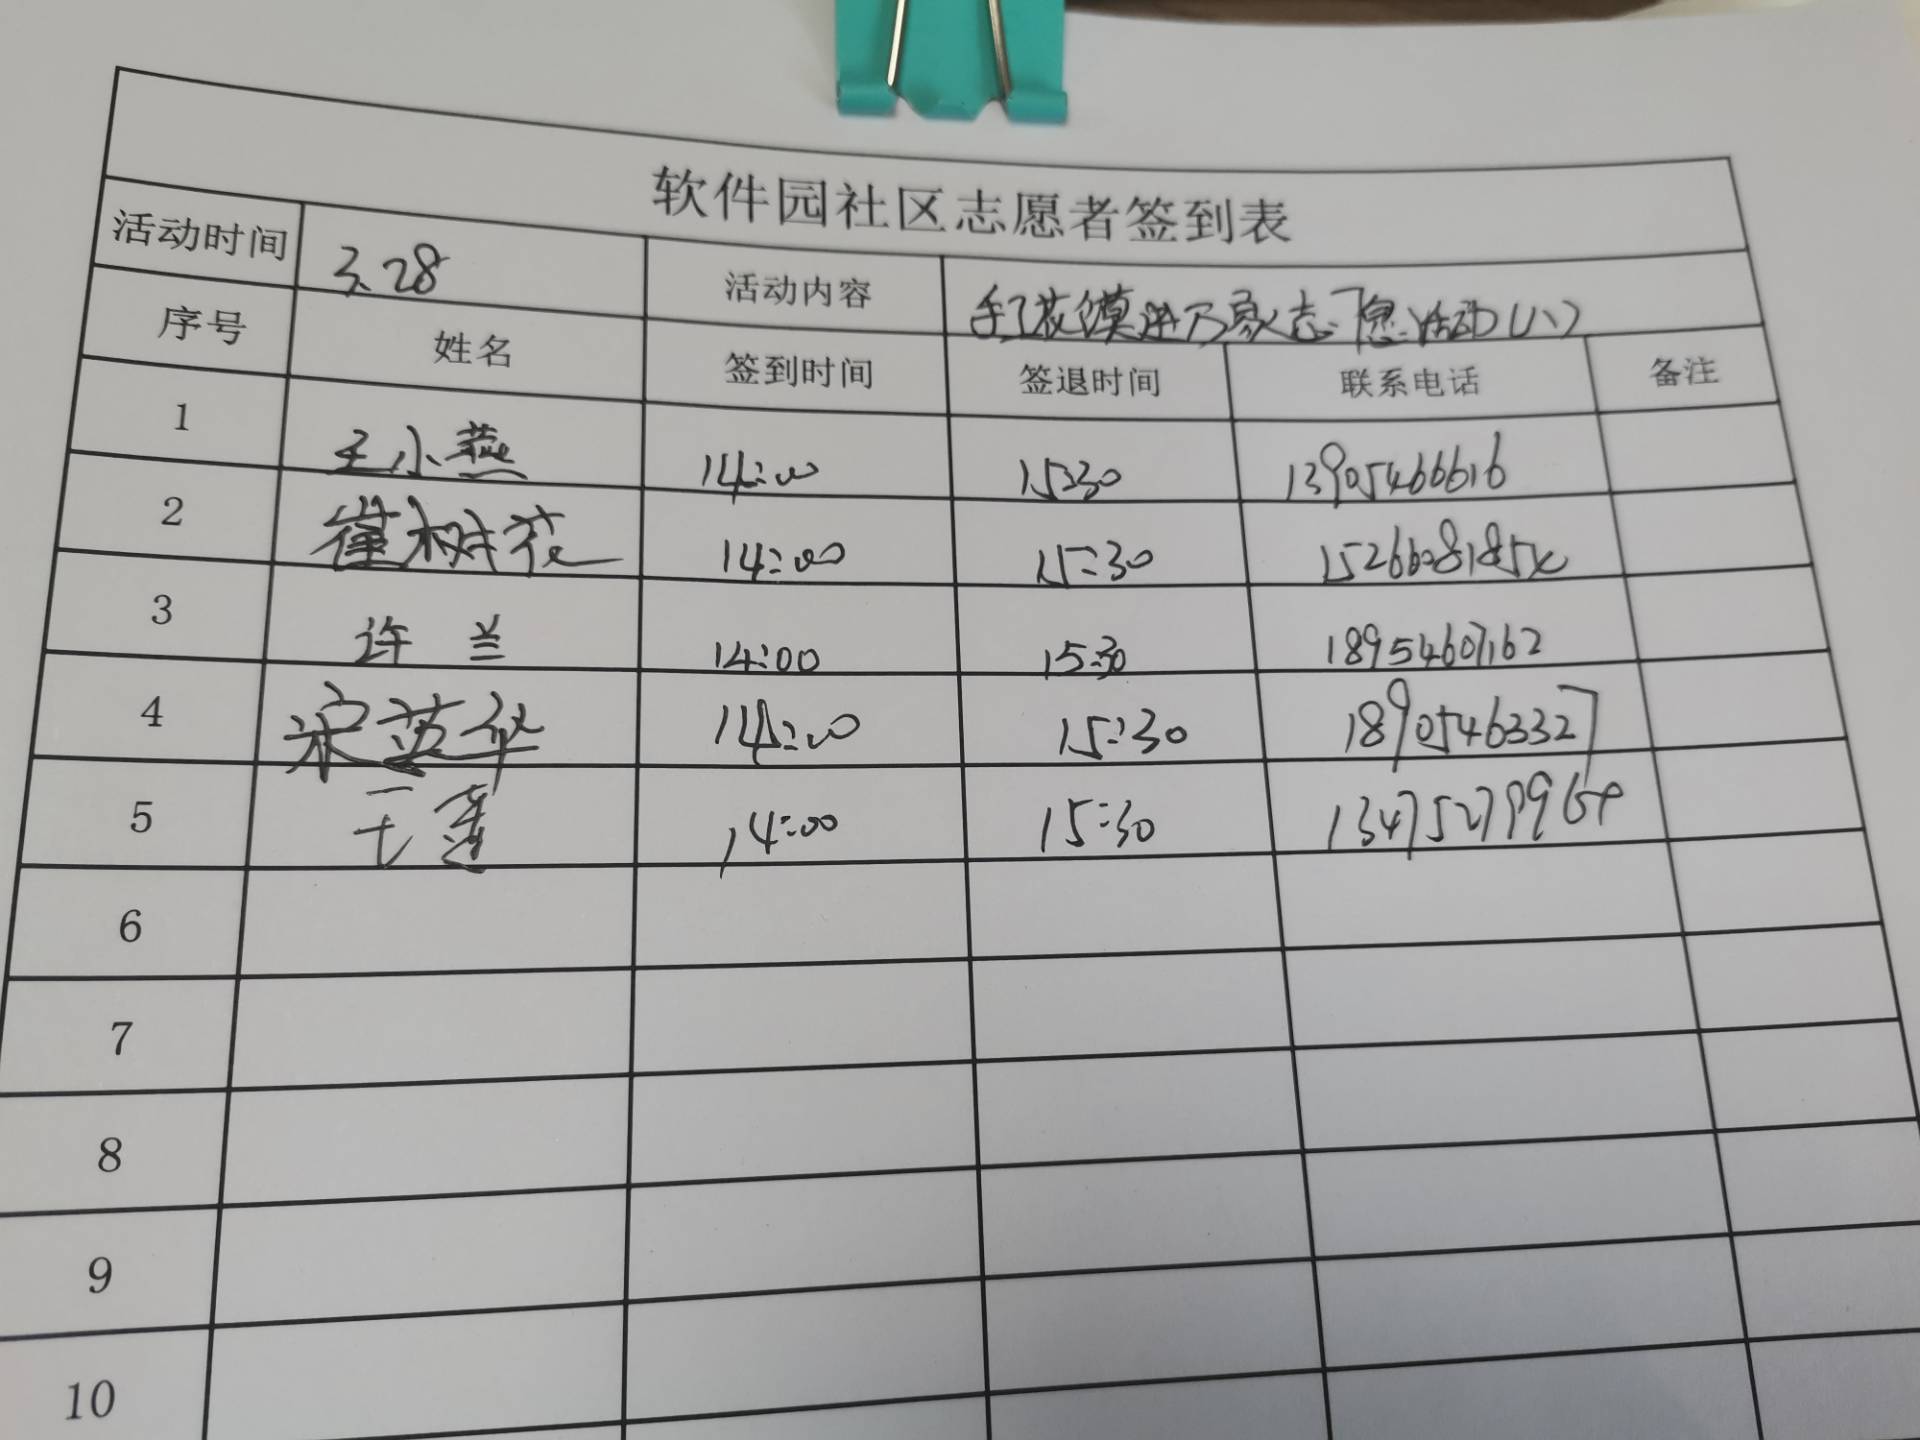 软件园社区志愿者签到表
活动时间 3.28 活动内容 手工花馍进万家志愿活动(八)
序号 姓名 签到时间 签退时间 联系电话 备注
1 王小燕 14:00 15:30 13905466616
2 崔树花 14:00 15:30
3 许兰 14:00 15:30 18954607162
4 14:00 15:30 18905463327
5 14:00 15:30
6
7
8
9
10